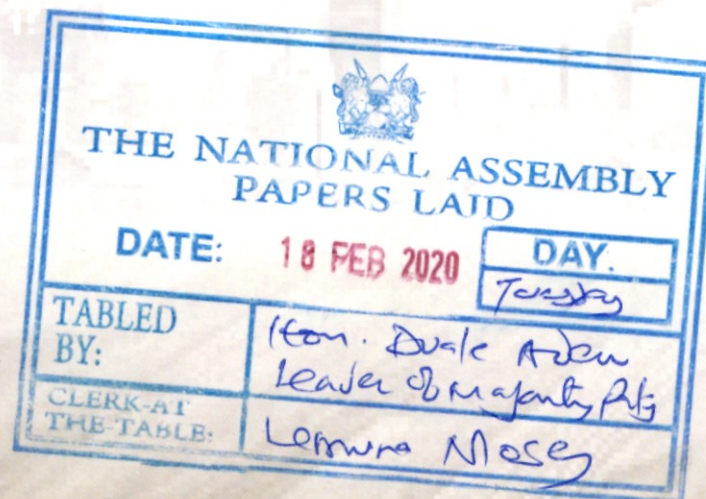 THE NATIONAL ASSEMBLY
PAPERS LAID
DATE: 18 FEB 2020
DAY.
Tuesday
TABLED BY:
Hon. Duale Aden
Leader of Majority Party
CLERK-AT THE-TABLE:
Lemuna Moses